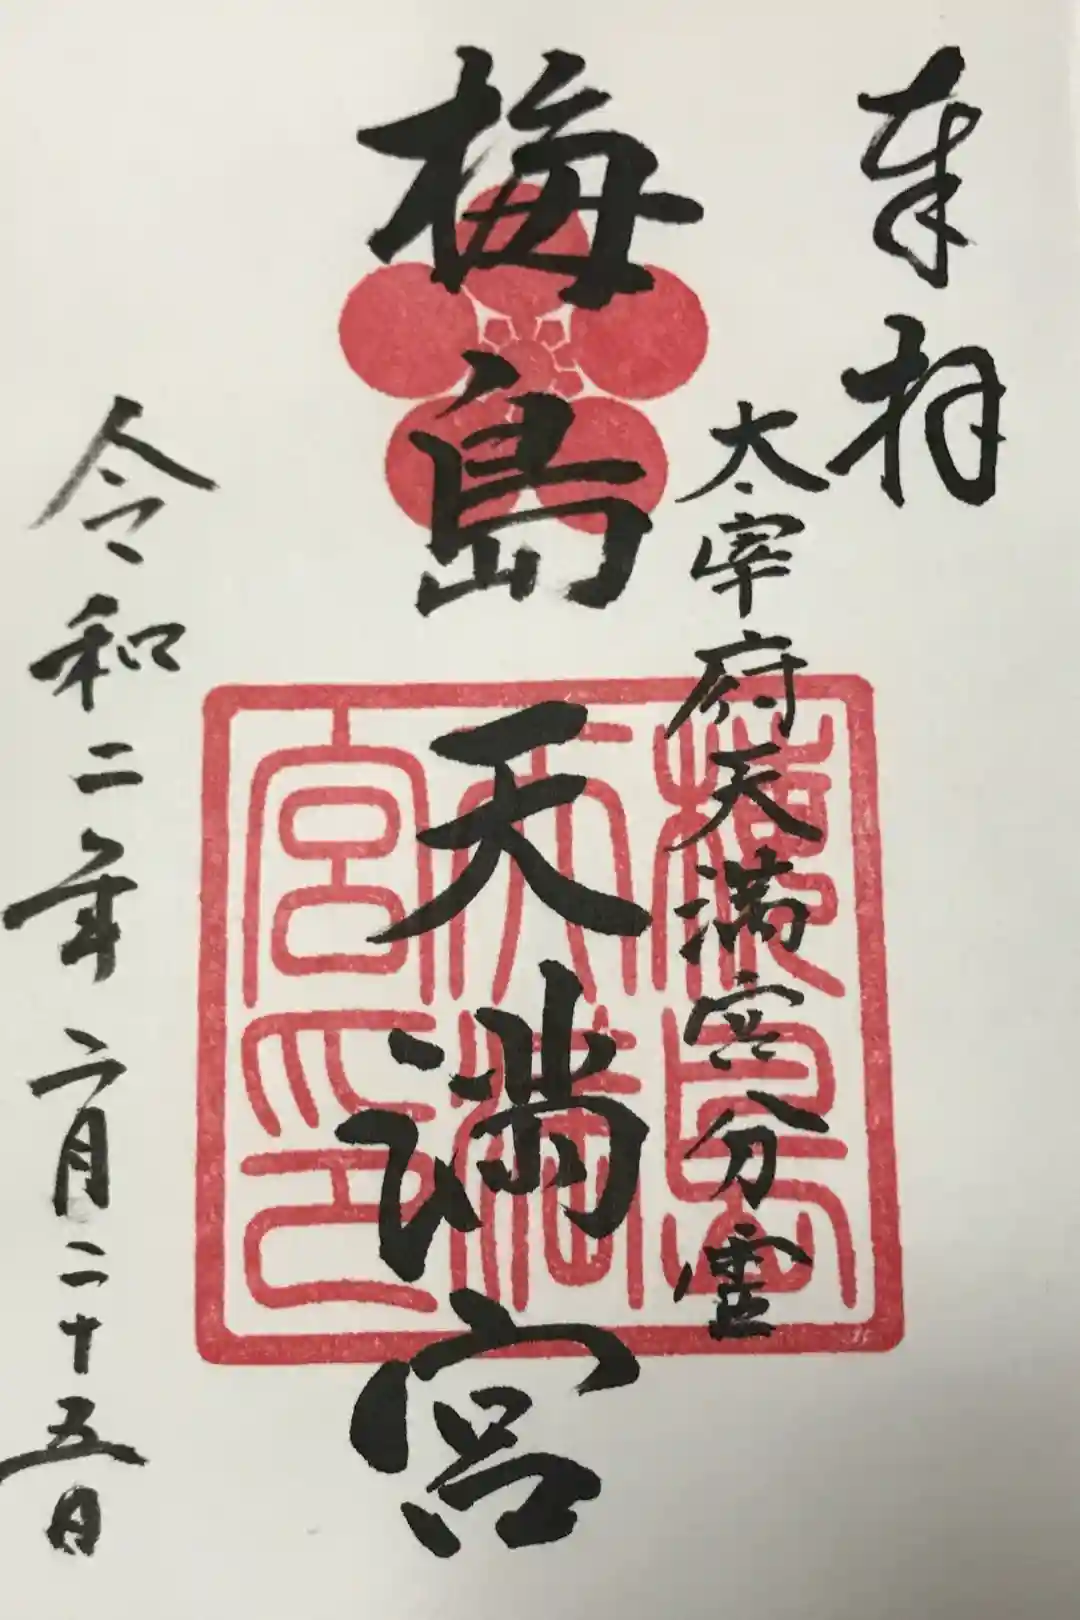 奉拝
太宰府天満宮分霊
梅島天満宮
梅島
天満
宮印
令和二年二月二十五日